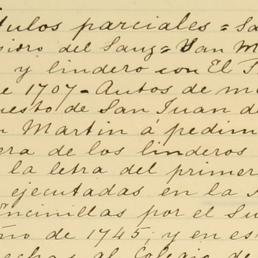 tulos parciales = Sa
isidro del Sauz = San M
y lindero con El T
e 1707 - Autos de m
uesto de San Juan d
n Martin á pedim
era de los linderos
la letra del primer
ejecutadas en la
Encinillas por el Su
ño de 1745; y en es
echas al Colegio de